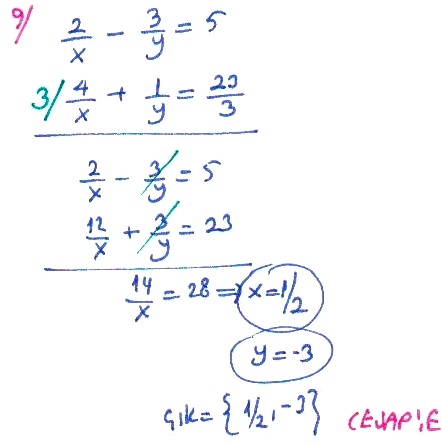 9/ 2/x - 3/y = 5
3/ 4/x + 1/y = 23/3
2/x - 3/y = 5
12/x + 3/y = 23
14/x = 28 ⇒ x = 1/2
y = -3
Ç.K = {1/2, -3} CEVAP: E